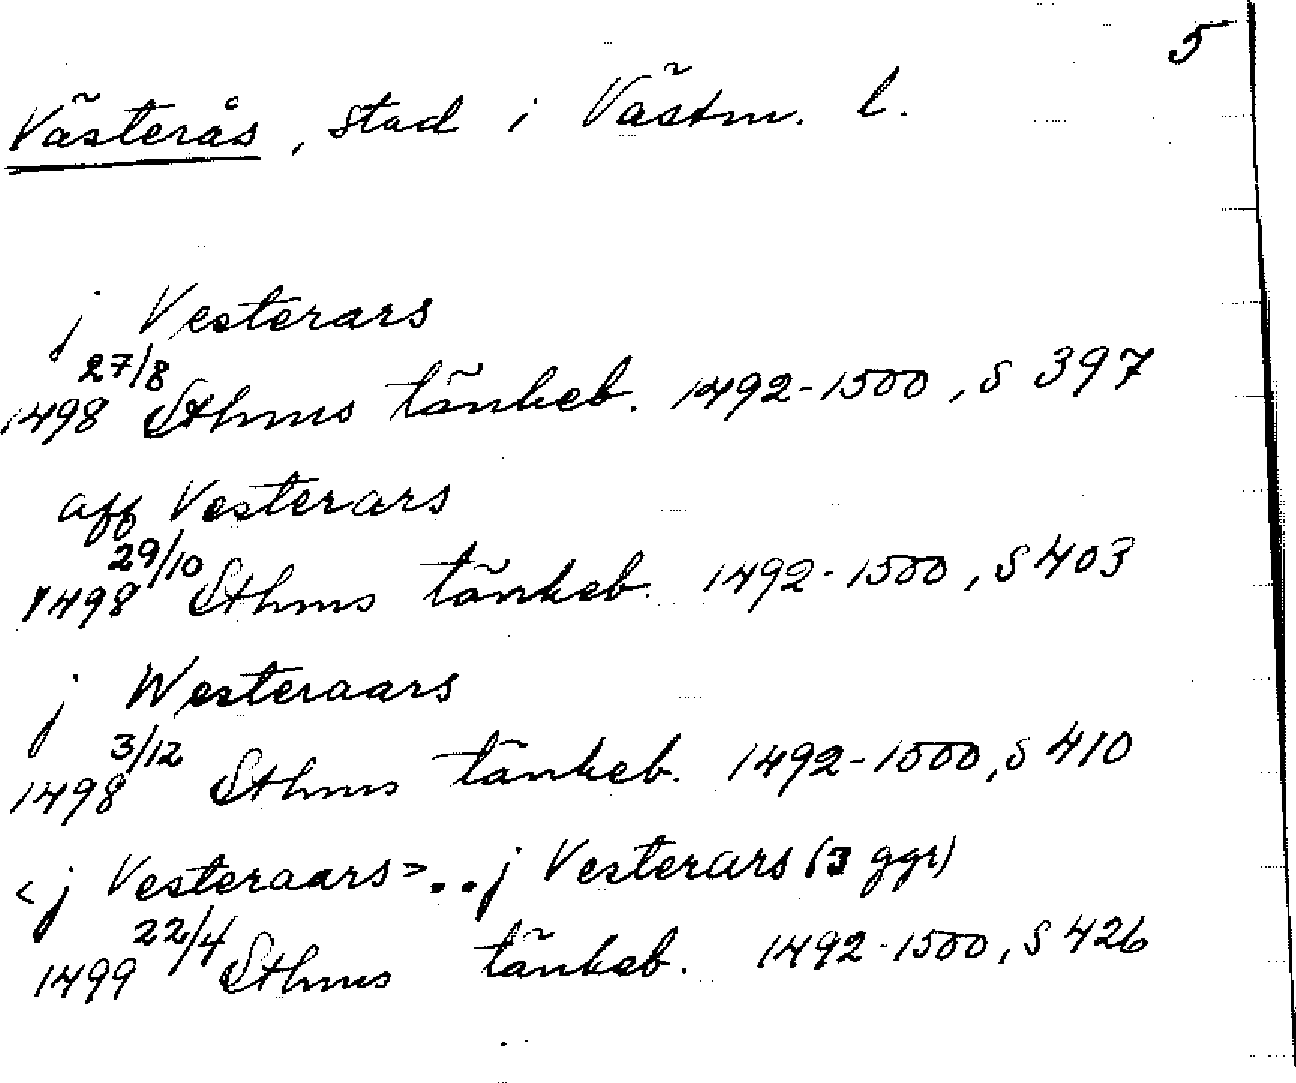 5
Västerås, stad i Västm. l.
j Vesterars
1498 27/8 Sthms tänkeb. 1492-1500, s 397
aff Vesterars
1498 29/10 Sthms tänkeb. 1492-1500, s 403
j Westeraars
1498 3/12 Sthms tänkeb. 1492-1500, s 410
<j Vesteraars>..j Vesterars (3 ggr)
1499 22/4 Sthms tänkeb. 1492-1500, s 426